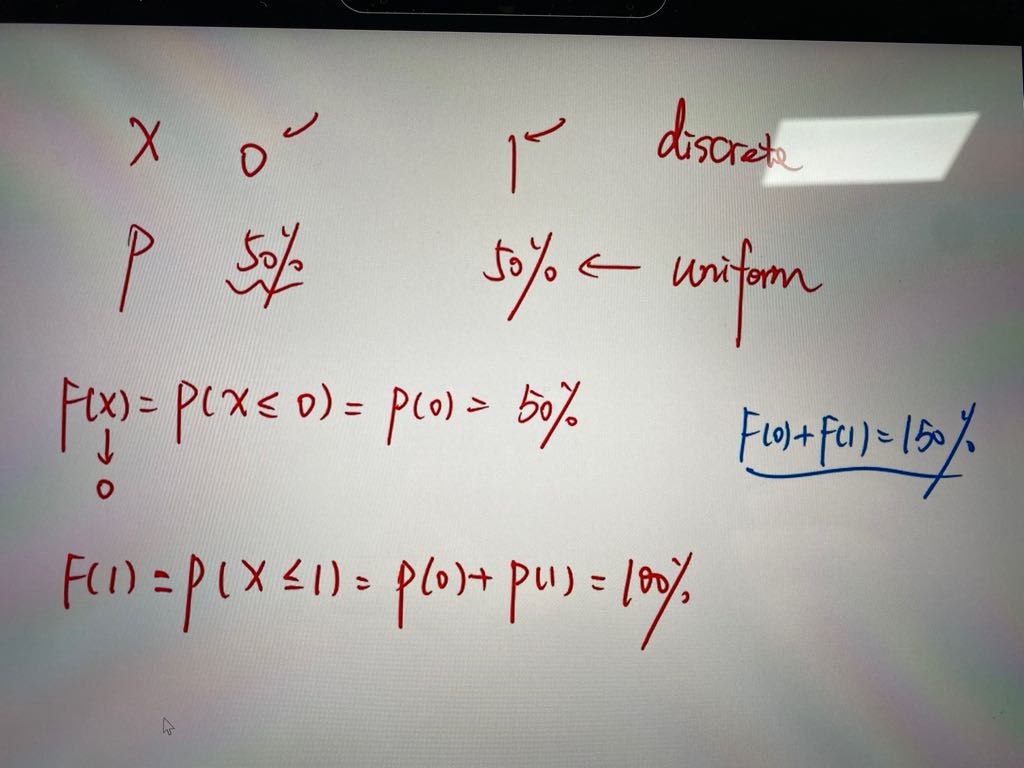 X 0 ✓ 1 ✓ discrete
P 50% 50% ← uniform
F(X) = P(X ≤ 0) = P(0) = 50%
↓
0
F(0) + F(1) = 150%
F(1) = P(X ≤ 1) = P(0) + P(1) = 100%